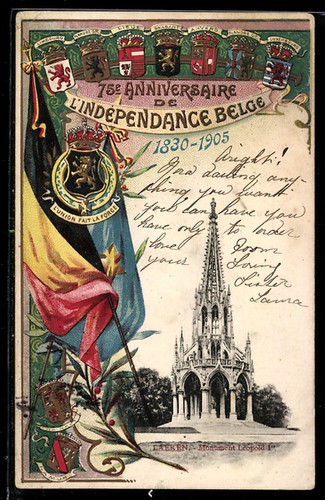 75E ANNIVERSAIRE
DE
L'INDÉPENDANCE BELGE
1830-1905
L'UNION FAIT LA FORCE
Alright!
You darling any-
thing you want
you can have you
have only to order
love
yours Loving
Sister
Laura
LAEKEN. - Monument Léopold Ier